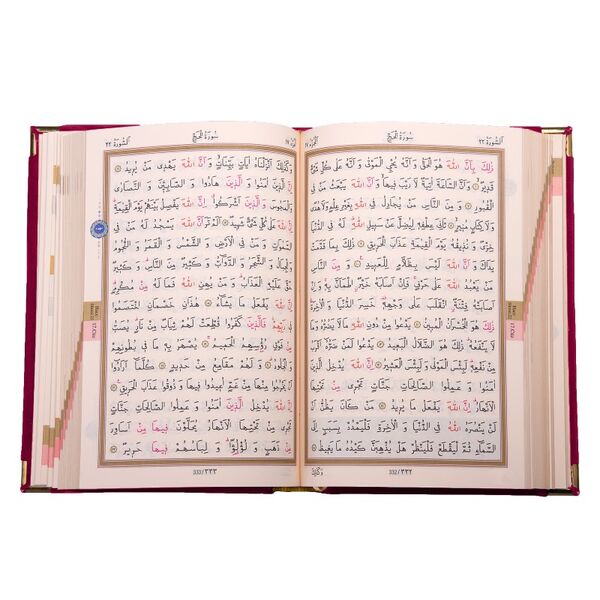 اَلسُّورَةُ ٢٢
سُورَةُ الْحَجِّ
اَلْجُزْءُ ١٧
ذٰلِكَ بِاَنَّ اللّٰهَ هُوَ الْحَقُّ وَاَنَّهُ يُحْيِ الْمَوْتٰى وَاَنَّهُ عَلٰى كُلِّ شَيْءٍ
قَدِيرٌ ۙ وَاَنَّ السَّاعَةَ اٰتِيَةٌ لَا رَيْبَ فِيهَا وَاَنَّ اللّٰهَ يَبْعَثُ مَنْ فِي
الْقُبُورِ وَمِنَ النَّاسِ مَنْ يُجَادِلُ فِي اللّٰهِ بِغَيْرِ عِلْمٍ وَلَا هُدًى
وَلَا كِتَابٍ مُنِيرٍ ۙ ثَانِيَ عِطْفِهِ لِيُضِلَّ عَنْ سَبِيلِ اللّٰهِ لَهُ فِي الدُّنْيَا
خِزْيٌ وَنُذِيقُهُ يَوْمَ الْقِيٰمَةِ عَذَابَ الْحَرِيقِ ذٰلِكَ بِمَا قَدَّمَتْ
يَدَاكَ وَاَنَّ اللّٰهَ لَيْسَ بِظَلَّامٍ لِلْعَبِيدِ وَمِنَ النَّاسِ
مَنْ يَعْبُدُ اللّٰهَ عَلٰى حَرْفٍ فَاِنْ اَصَابَهُ خَيْرٌ اطْمَاَنَّ بِهِ وَاِنْ
اَصَابَتْهُ فِتْنَةٌ انْقَلَبَ عَلٰى وَجْهِهِ خَسِرَ الدُّنْيَا وَالْاٰخِرَةَ
ذٰلِكَ هُوَ الْخُسْرَانُ الْمُبِينُ يَدْعُوا مِنْ دُونِ اللّٰهِ مَا لَا يَضُرُّهُ وَمَا
لَا يَنْفَعُهُ ذٰلِكَ هُوَ الضَّلَالُ الْبَعِيدُ يَدْعُوا لَمَنْ ضَرُّهُ اَقْرَبُ
مِنْ نَفْعِهِ لَبِئْسَ الْمَوْلٰى وَلَبِئْسَ الْعَشِيرُ اِنَّ اللّٰهَ يُدْخِلُ
الَّذِينَ اٰمَنُوا وَعَمِلُوا الصَّالِحَاتِ جَنَّاتٍ تَجْرِي مِنْ تَحْتِهَا
الْاَنْهَارُ اِنَّ اللّٰهَ يَفْعَلُ مَا يُرِيدُ مَنْ كَانَ يَظُنُّ اَنْ
لَنْ يَنْصُرَهُ اللّٰهُ فِي الدُّنْيَا وَالْاٰخِرَةِ فَلْيَمْدُدْ بِسَبَبٍ اِلَى
السَّمَاءِ ثُمَّ لْيَقْطَعْ فَلْيَنْظُرْ هَلْ يُذْهِبَنَّ كَيْدُهُ مَا يَغِيظُ
332/٣٣٢
وَكَذٰلِكَ
اَلسُّورَةُ ٢٢
سُورَةُ الْحَجِّ
اَلْجُزْءُ ١٧
وَكَذٰلِكَ اَنْزَلْنَاهُ اٰيَاتٍ بَيِّنَاتٍ وَاَنَّ اللّٰهَ يَهْدِي مَنْ يُرِيدُ
اِنَّ الَّذِينَ اٰمَنُوا وَالَّذِينَ هَادُوا وَالصَّابِـِٔينَ وَالنَّصَارٰى
وَالْمَجُوسَ وَالَّذِينَ اَشْرَكُوا اِنَّ اللّٰهَ يَفْصِلُ بَيْنَهُمْ يَوْمَ الْقِيٰمَةِ
اِنَّ اللّٰهَ عَلٰى كُلِّ شَيْءٍ شَهِيدٌ اَلَمْ تَرَ اَنَّ اللّٰهَ يَسْجُدُ لَهُ مَنْ فِي
السَّمٰوَاتِ وَمَنْ فِي الْاَرْضِ وَالشَّمْسُ وَالْقَمَرُ وَالنُّجُومُ
وَالْجِبَالُ وَالشَّجَرُ وَالدَّوَابُّ وَكَثِيرٌ مِنَ النَّاسِ وَكَثِيرٌ
حَقَّ عَلَيْهِ الْعَذَابُ وَمَنْ يُهِنِ اللّٰهُ فَمَا لَهُ مِنْ مُكْرِمٍ
اِنَّ اللّٰهَ يَفْعَلُ مَا يَشَاءُ هٰذَانِ خَصْمَانِ اخْتَصَمُوا
فِي رَبِّهِمْ فَالَّذِينَ كَفَرُوا قُطِّعَتْ لَهُمْ ثِيَابٌ مِنْ نَارٍ يُصَبُّ
مِنْ فَوْقِ رُؤُسِهِمُ الْحَمِيمُ يُصْهَرُ بِهِ مَا فِي بُطُونِهِمْ
وَالْجُلُودُ وَلَهُمْ مَقَامِعُ مِنْ حَدِيدٍ كُلَّمَا اَرَادُوا
اَنْ يَخْرُجُوا مِنْهَا مِنْ غَمٍّ اُعِيدُوا فِيهَا وَذُوقُوا عَذَابَ الْحَرِيقِ
اِنَّ اللّٰهَ يُدْخِلُ الَّذِينَ اٰمَنُوا وَعَمِلُوا الصَّالِحَاتِ جَنَّاتٍ
تَجْرِي مِنْ تَحْتِهَا الْاَنْهَارُ يُحَلَّوْنَ فِيهَا مِنْ اَسَاوِرَ
مِنْ ذَهَبٍ وَلُؤْلُؤًا وَلِبَاسُهُمْ فِيهَا حَرِيرٌ
333/٣٣٣
17.Cüz
17.Cüz